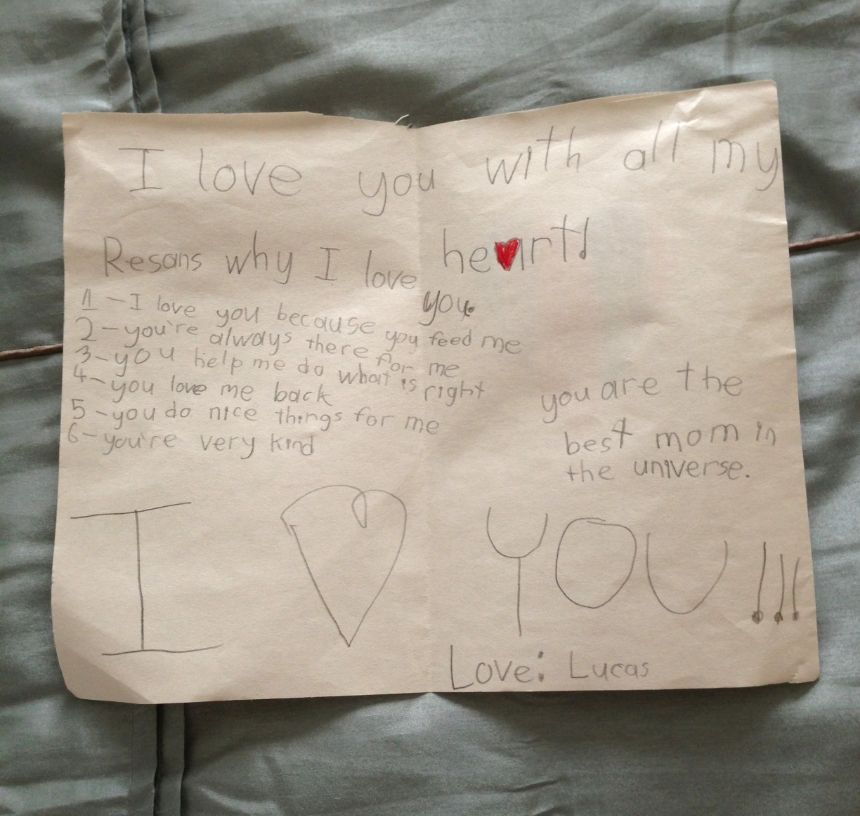 I love you with all my
he❤rt!
Resons why I love you
1 - I love you because you feed me
2 - you're always there for me
3 - you help me do what is right
4 - you love me back
5 - you do nice things for me
6 - you're very kind
you are the
best mom in
the universe.
I ♡ YOU!!!
Love: Lucas